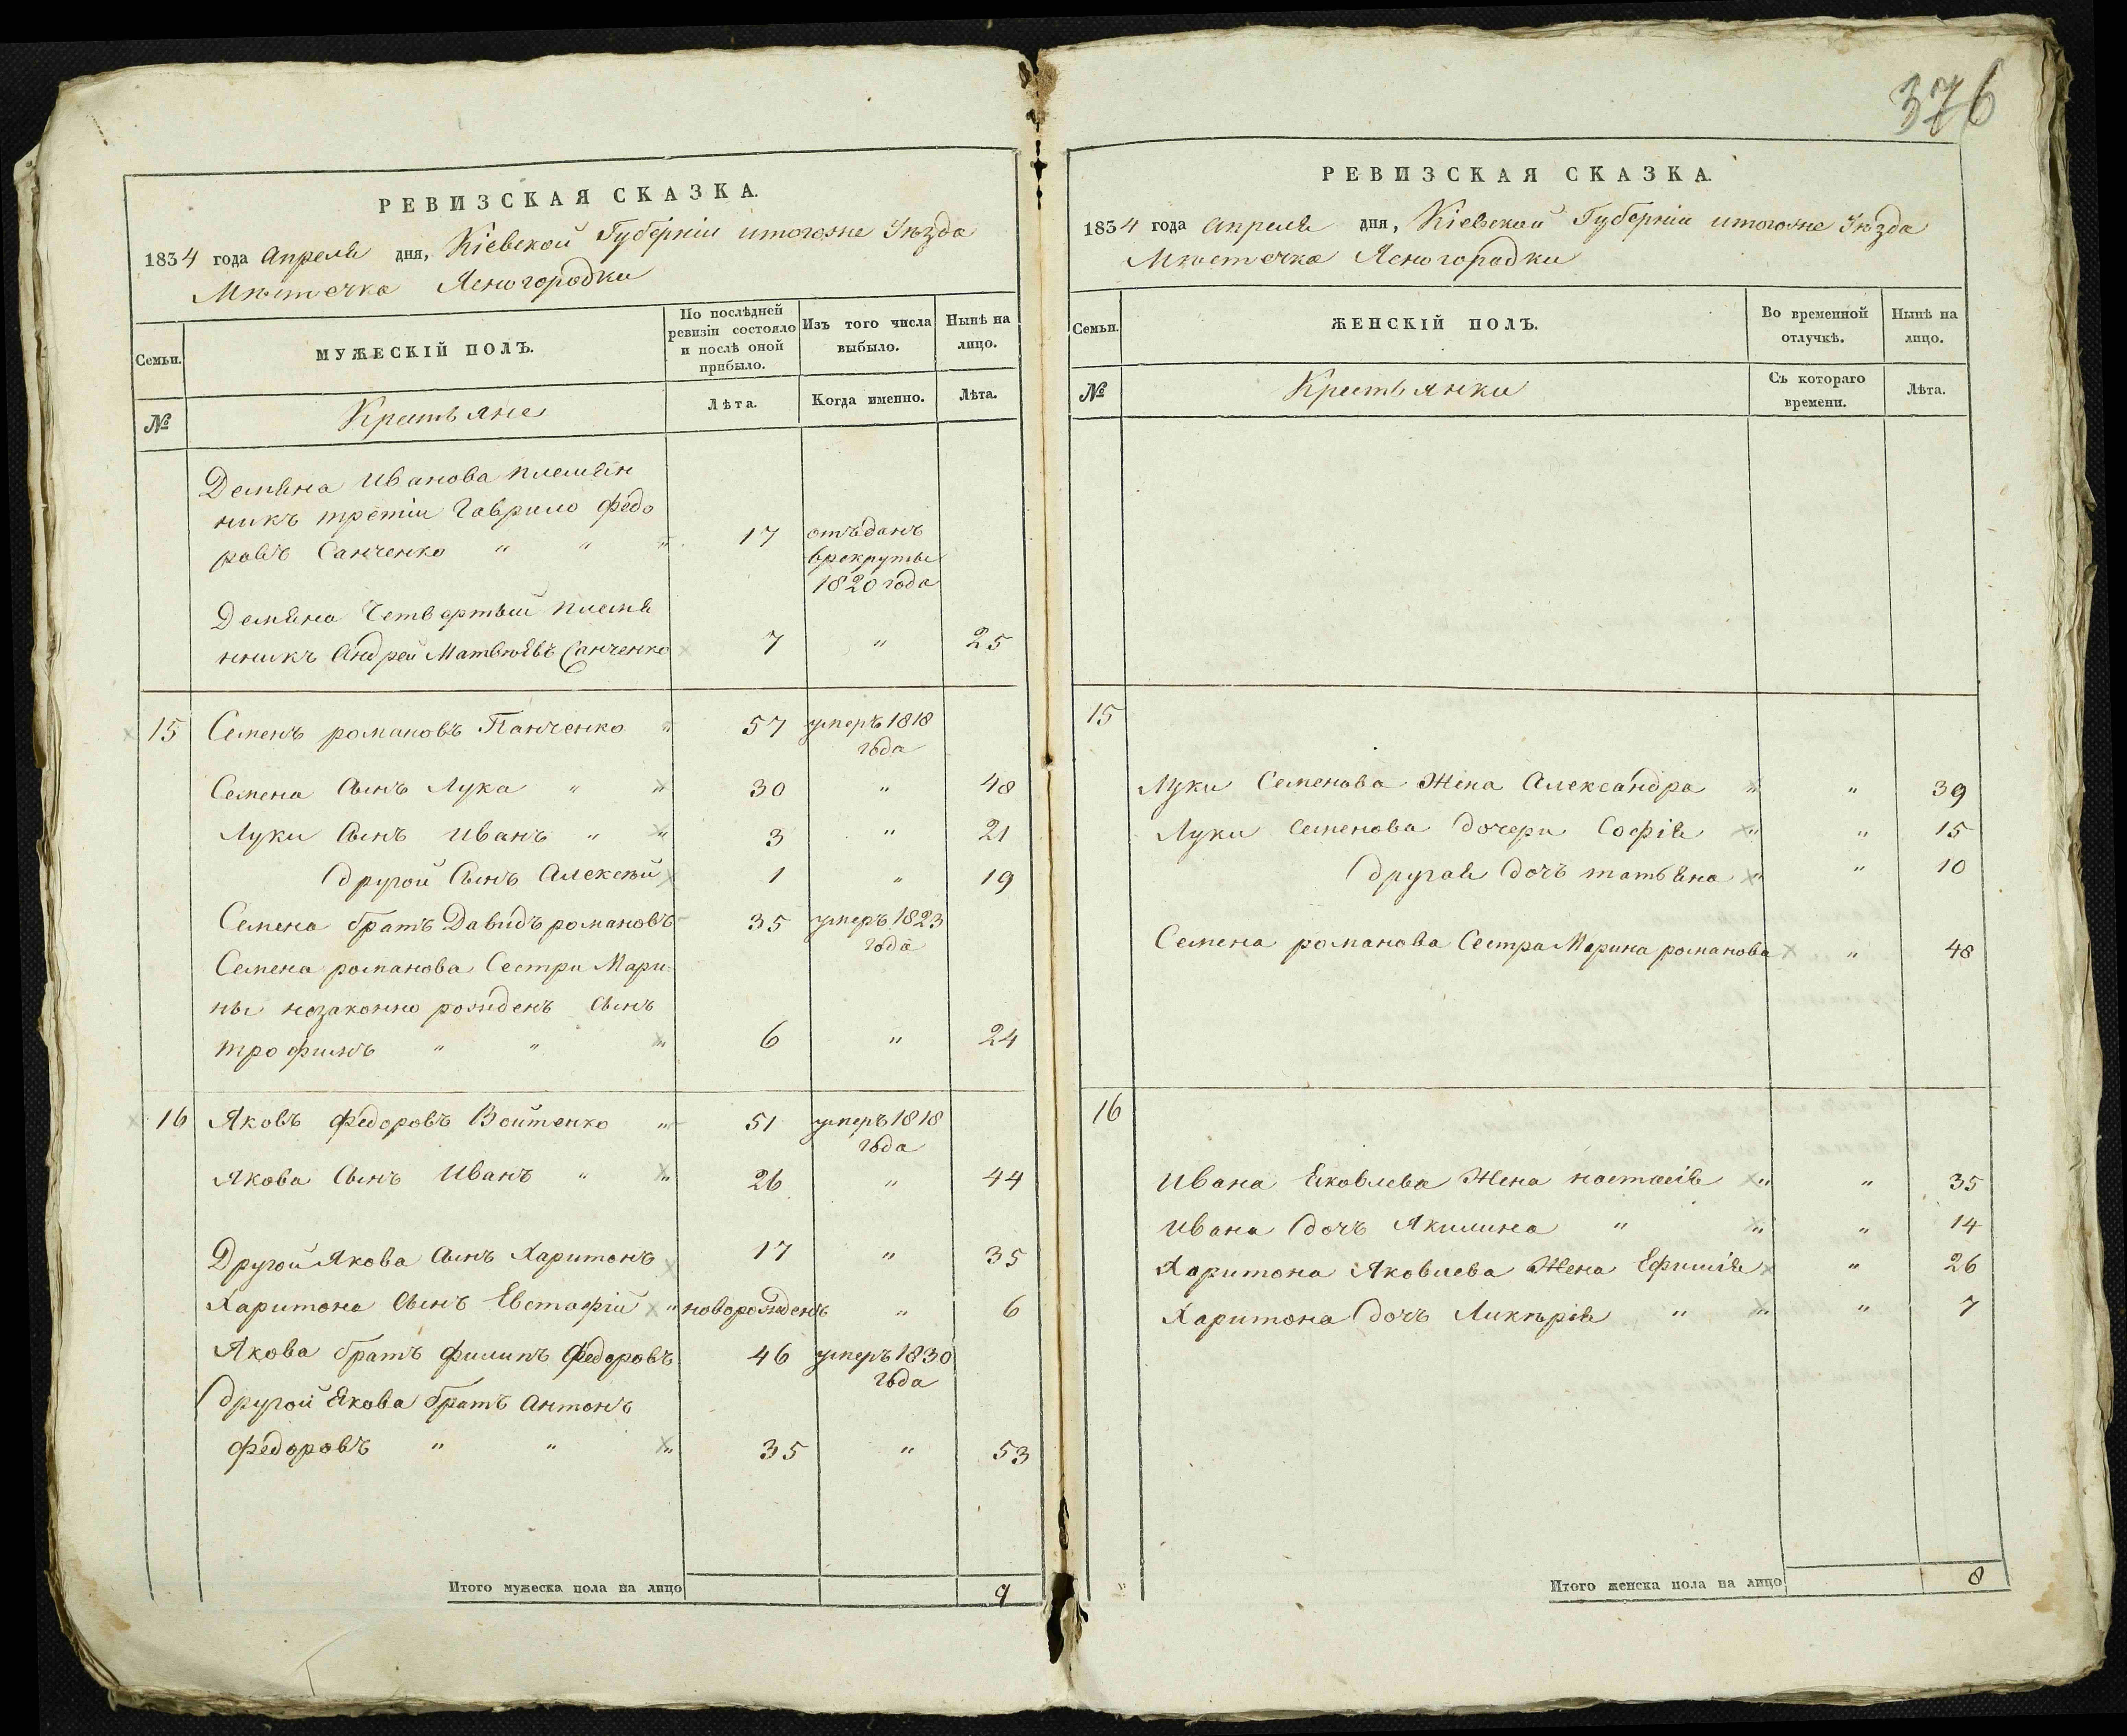 376
РЕВИЗСКАЯ СКАЗКА.
1834 года Апреля дня, Кіевской Губерніи итогоже Уѣзда
Мѣстечка Ясногородки
Семьи.
МУЖЕСКІЙ ПОЛЪ.
По послѣдней ревизіи состояло и послѣ оной прибыло.
Изъ того числа выбыло.
Нынѣ на лицо.
№
Крестьяне
Лѣта.
Когда именно.
Лѣта.
Демяна Иванова племян
никъ третіи Гаврило Федо
ровъ Санченко " " " 17 отъданъ
врекруты
1820 года
Демяна Четвертый племя
нникъ Андрей Матвѣевъ Санченко 7 " 25
15 Семенъ романовъ Панченко " 57 умеръ 1818
года
Семена Сынъ Лука " " 30 " 48
Луки Сынъ Иванъ " " 3 " 21
другой Сынъ Алексѣй 1 " 19
Семена братъ Давидъ романовъ 35 умеръ 1823
года
Семена романова Сестри Мари-
ны незаконно рожденъ Сынъ
трофимъ " " " 6 " 24
16 Яковъ Федоровъ Войтенко " 51 умеръ 1818
года
Якова Сынъ Иванъ " " 26 " 44
Другой Якова Сынъ Харитонъ 17 " 35
Харитона Сынъ Евстафій " новорожденъ " 6
Якова братъ филипъ Федоровъ 46 умеръ 1830
года
другой Якова братъ Антонъ
Федоровъ " " " 35 " 53
Итого мужеска пола на лицо 9
РЕВИЗСКАЯ СКАЗКА.
1834 года Апреля дня, Кіевской Губерніи итогоже Уѣзда
Мѣстечка Ясногородки
Семьи.
ЖЕНСКІЙ ПОЛЪ.
Во временной отлучкѣ.
Нынѣ на лицо.
№
Крестьянки
Съ котораго времени.
Лѣта.
15
Луки Семенова Жена Александра " " 39
Луки Семенова дочери Софія " " 15
другая дочъ татьяна " " 10
Семена романова Сестра Марина романова " 48
16
Ивана Яковлева Жена настасія " " 35
Ивана дочъ Якилина " " " 14
Харитона Яковлева Жена Ефимія " 26
Харитона дочъ Ликѣрія " " " 7
Итого женска пола на лицо 8